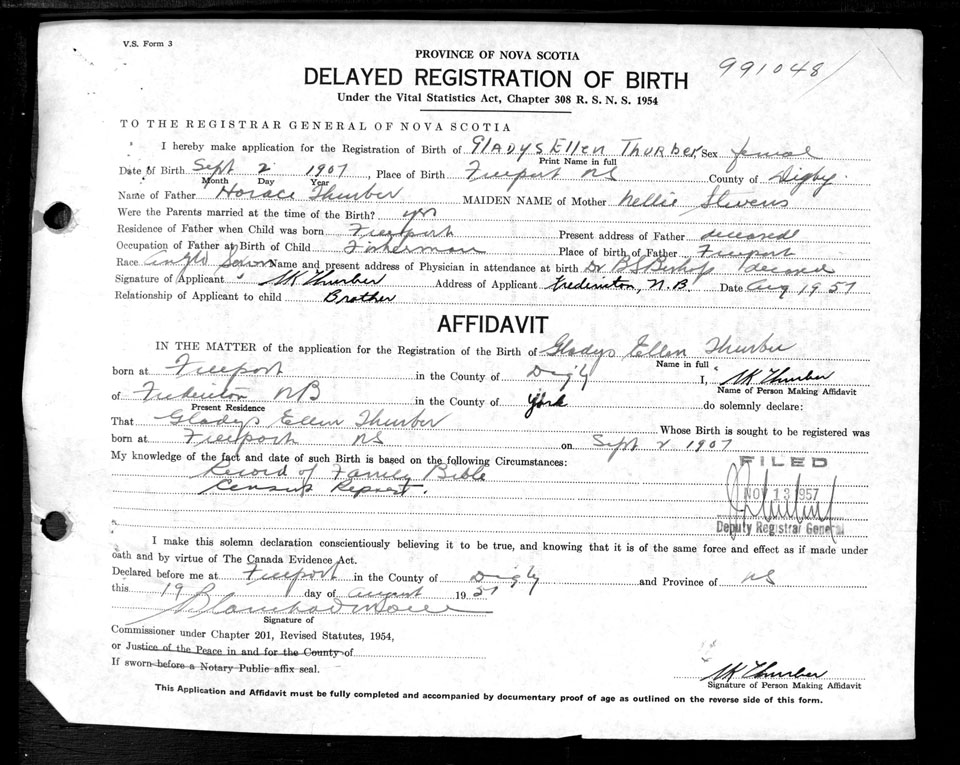 V.S. Form 3
PROVINCE OF NOVA SCOTIA
991048
DELAYED REGISTRATION OF BIRTH
Under the Vital Statistics Act, Chapter 308 R. S. N. S. 1954
TO THE REGISTRAR GENERAL OF NOVA SCOTIA
I hereby make application for the Registration of Birth of Gladys Ellen Thurber, Sex female
Print Name in full
Date of Birth Sept 2 1907, Place of Birth Freeport NS County of Digby
Month Day Year
Name of Father Horace Thurber MAIDEN NAME of Mother Nellie Stevens
Were the Parents married at the time of the Birth? yes
Residence of Father when Child was born Freeport Present address of Father deceased
Occupation of Father at Birth of Child Fisherman Place of birth of Father Freeport
Race Anglo Saxon Name and present address of Physician in attendance at birth Dr Bishop deceased
Signature of Applicant Thurber Address of Applicant Fredericton, N.B. Date Aug 19 57
Relationship of Applicant to child Brother
AFFIDAVIT
IN THE MATTER of the application for the Registration of the Birth of Gladys Ellen Thurber
Name in full
born at Freeport in the County of Digby I, Thurber
Name of Person Making Affidavit
of Fredericton NB in the County of York do solemnly declare:
Present Residence
That Gladys Ellen Thurber Whose Birth is sought to be registered was
born at Freeport NS on Sept 2 1907
My knowledge of the fact and date of such Birth is based on the following Circumstances:
Record of Family Bible
Census Report.
FILED
NOV 13 1957
Deputy Registrar General
I make this solemn declaration conscientiously believing it to be true, and knowing that it is of the same force and effect as if made under
oath and by virtue of The Canada Evidence Act.
Declared before me at Freeport in the County of Digby and Province of NS
this 19 day of August 1957
Signature of
Commissioner under Chapter 201, Revised Statutes, 1954,
or Justice of the Peace in and for the County of
If sworn before a Notary Public affix seal.
Thurber
Signature of Person Making Affidavit
This Application and Affidavit must be fully completed and accompanied by documentary proof of age as outlined on the reverse side of this form.